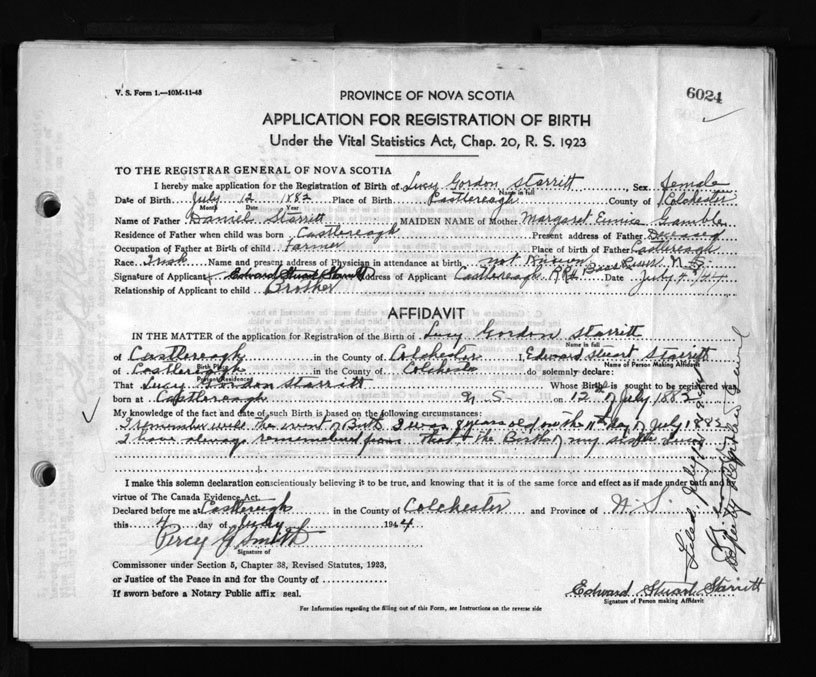 V. S. Form 1.—10M-11-43
PROVINCE OF NOVA SCOTIA
6024
APPLICATION FOR REGISTRATION OF BIRTH
Under the Vital Statistics Act, Chap. 20, R. S. 1923
TO THE REGISTRAR GENERAL OF NOVA SCOTIA
I hereby make application for the Registration of Birth of Lucy Gordon Starritt, Sex female
Name in full
Date of Birth July 12 1882 Place of Birth Castlereagh County of Colchester
Month Date Year
Name of Father Daniel Starritt MAIDEN NAME of Mother Margaret Eunice Gamble
Residence of Father when child was born Castlereagh Present address of Father
Occupation of Father at Birth of child Farmer Place of birth of Father Castlereagh
Race Irish Name and present address of Physician in attendance at birth not Known
Signature of Applicant Edward Stuart Starritt Address of Applicant Castlereagh N. S. Date July 4
Relationship of Applicant to child Brother
AFFIDAVIT
IN THE MATTER of the application for Registration of the Birth of Lucy Gordon Starritt
Name in full
of Castlereagh in the County of Colchester, Edward Stuart Starritt
Birth Place Name of Person Making Affidavit
of Castlereagh in the County of Colchester do solemnly declare:
Present Residence
That Lucy Gordon Starritt Whose Birth is sought to be registered was
born at Castlereagh N. S. on 12th of July 1882
My knowledge of the fact and date of such Birth is based on the following circumstances:
I remember well the event of Birth I was 8 years old on the 11th day of July 1882
I have always remembered from that the Birth of my sister
I make this solemn declaration conscientiously believing it to be true, and knowing that it is of the same force and effect as if made under oath and by
virtue of The Canada Evidence Act.
Declared before me at Castlereagh in the County of Colchester and Province of N. S.
this 4 day of July 1944
Percy G Smith
Signature of
Commissioner under Section 5, Chapter 38, Revised Statutes, 1923,
or Justice of the Peace in and for the County of
If sworn before a Notary Public affix seal.
Edward Stuart Starritt
Signature of Person making Affidavit
For Information regarding the filling out of this Form, see Instructions on the reverse side